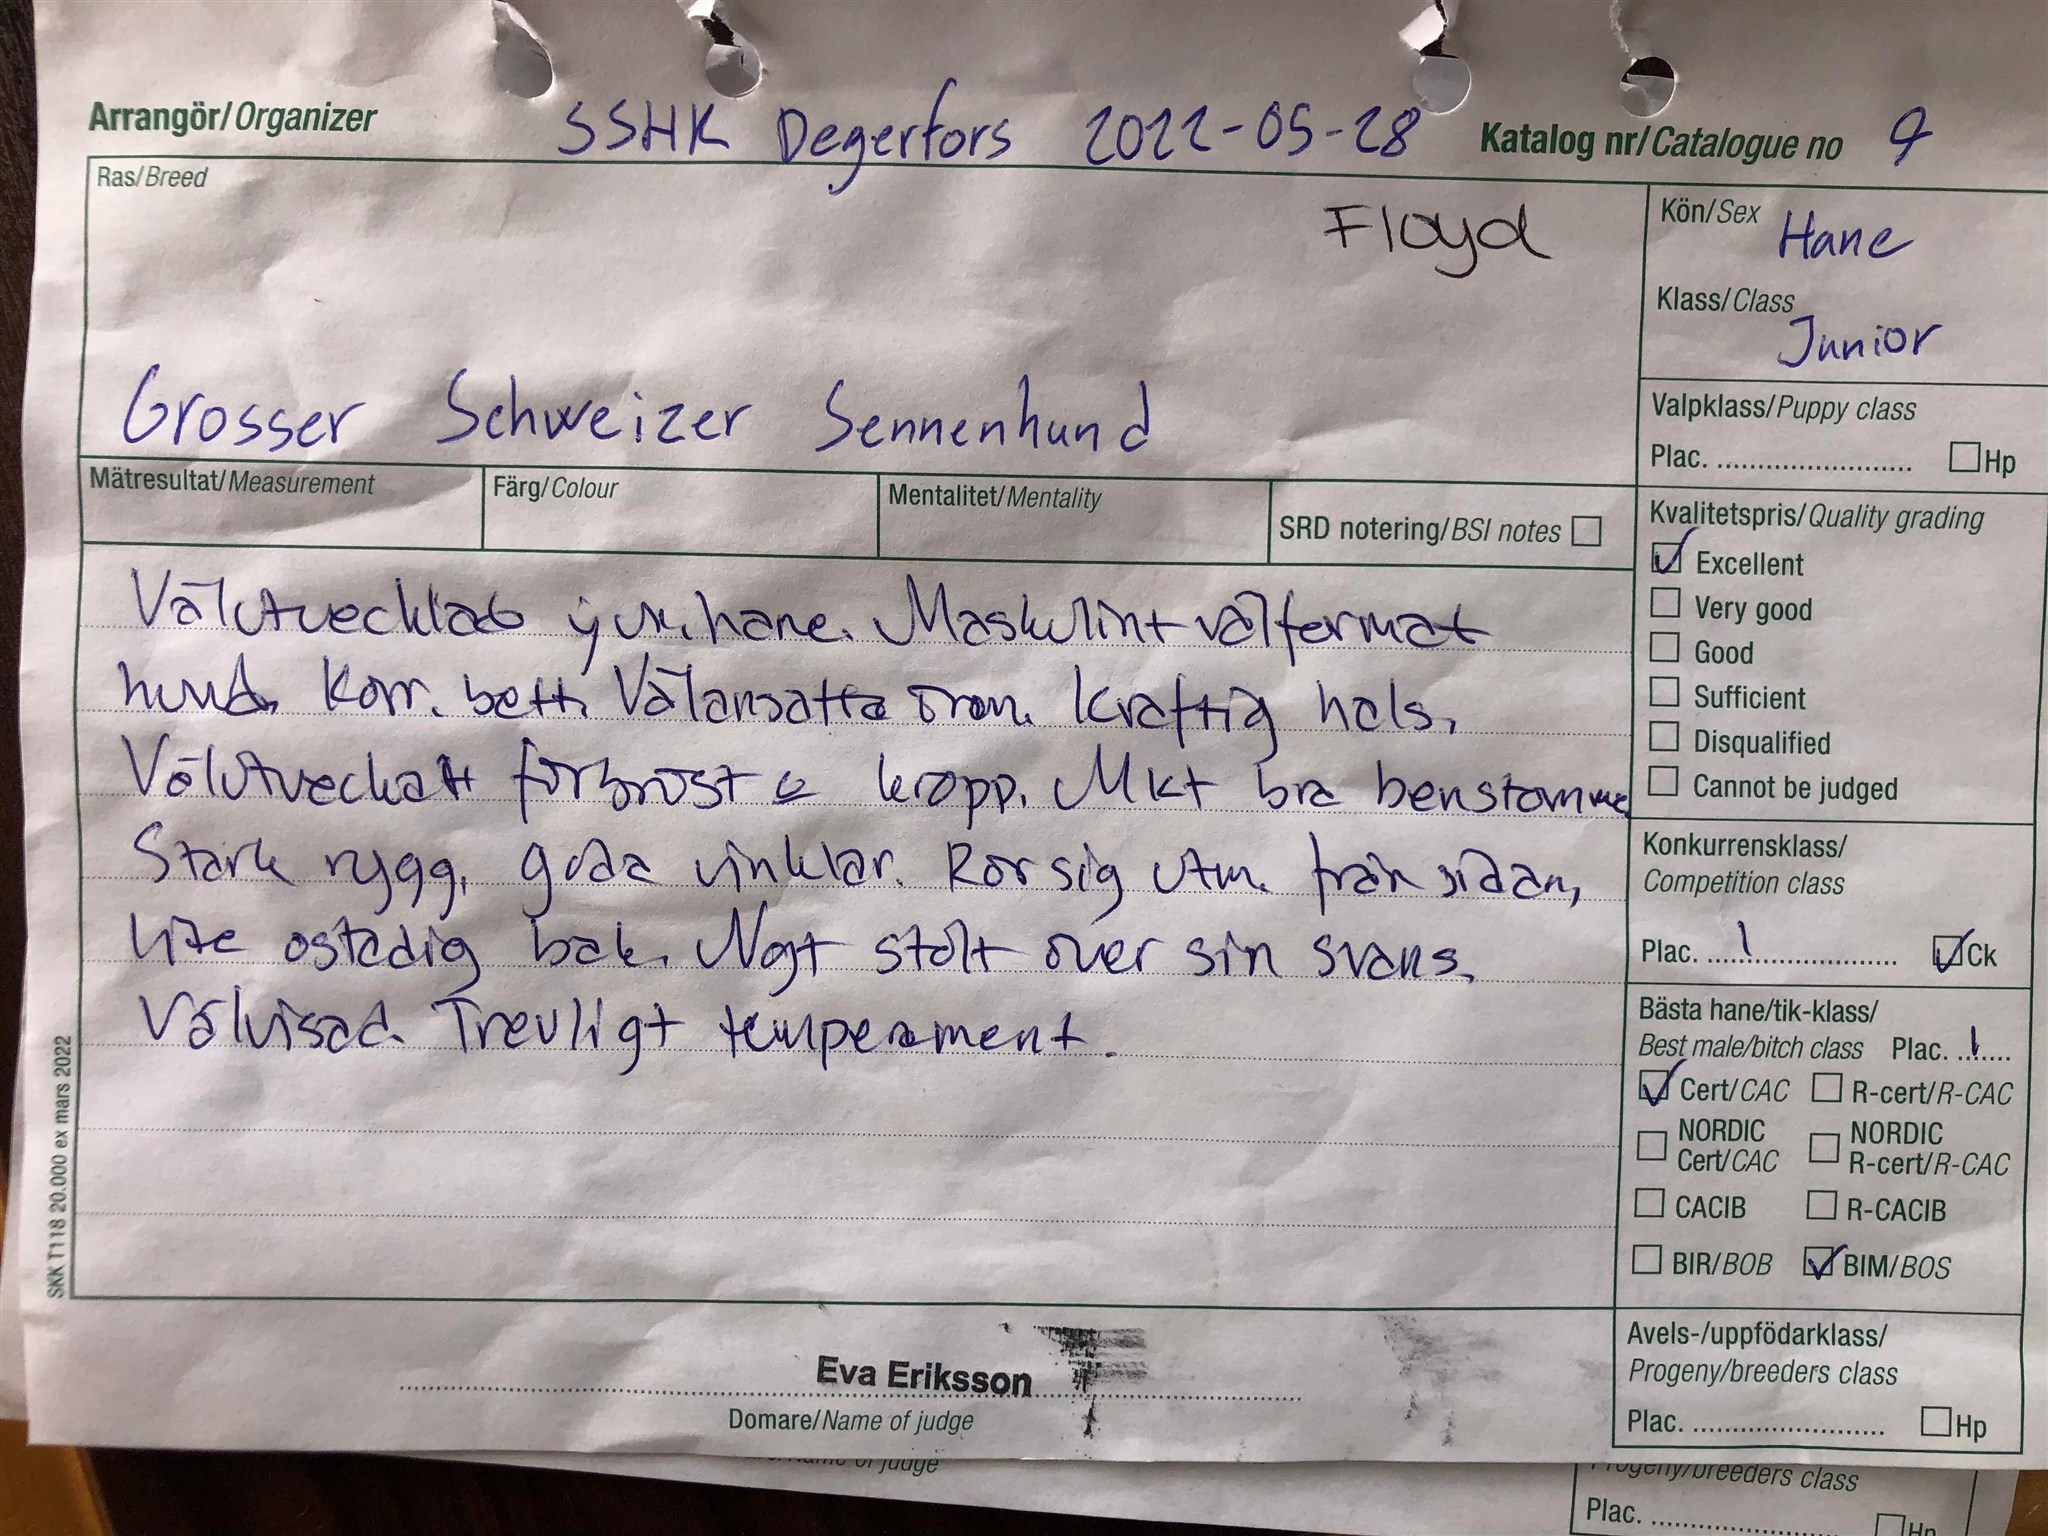 Arrangör/Organizer SSHK Degerfors 2022-05-28 Katalog nr/Catalogue no 9
Ras/Breed
Floyd
Grosser Schweizer Sennenhund
Kön/Sex Hane
Klass/Class
Junior
Valpklass/Puppy class
Plac. Hp
Mätresultat/Measurement Färg/Colour Mentalitet/Mentality SRD notering/BSI notes
Kvalitetspris/Quality grading
Excellent
Very good
Good
Sufficient
Disqualified
Cannot be judged
Välutvecklad jun.hane. Maskulint välformat
huvud. Korr. bett. Välansatta öron. Kraftig hals.
Välutvecklatt förbröst o kropp. Mkt bra benstomme
Stark rygg, goda vinklar. Rör sig utm. från sidan,
lite ostadig bak. Ngt stolt över sin svans.
Välvisad. Trevligt temperament.
Konkurrensklass/
Competition class
Plac. 1 Ck
Bästa hane/tik-klass/
Best male/bitch class Plac. 1
Cert/CAC R-cert/R-CAC
NORDIC Cert/CAC NORDIC R-cert/R-CAC
CACIB R-CACIB
BIR/BOB BIM/BOS
Avels-/uppfödarklass/
Progeny/breeders class
Plac. Hp
Eva Eriksson
Domare/Name of judge
SKK T118 20.000 ex mars 2022
Name of judge
Progeny/breeders class
Plac. Hp